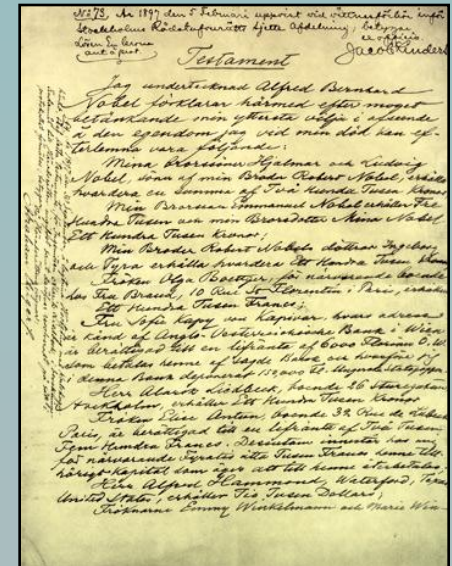 No 73, År 1897 den 5 Februari uppvist vid vittnesförhör inför
Stockholms Rådstufvurätts sjette Afdelning; betygar
Lösen En krona
ex officio.
Testament
Jag undertecknad Alfred Bernhard
Nobel förklarar härmed efter moget
betänkande min yttersta vilja i afseende
å den egendom jag vid min död kan ef-
terlemna vara följande:
Mina Brorsöner Hjalmar och Ludvig
Nobel, söner af min Broder Robert Nobel, erhålla
hvardera en summa af Två Hundra Tusen Kronor
Min Brorson Emmanuel Nobel erhåller Tre
Hundra Tusen och min Brorsdotter Mina Nobel
Ett Hundra Tusen Kronor;
Min Broder Robert Nobels döttrar Ingeborg
och Tyra erhålla hvardera Ett Hundra Tusen Kronor
Fröken Olga Boettger, för närvarande boende
hos Fru Brand, 10 Rue St Florentin i Paris, erhåller
Ett Hundra Tusen Francs;
Fru Sofie Kapy von Kapivar, hvars adress
är känd af Anglo-Oesterreichische Bank i Wien
är berättigad till en lifränta af 6000 Florins Ö.W.
som betalas henne af sagde Bank och hvarföre jag
i denna Bank deponerat 150,000 Fl. i Ungerska Statspapper
Herr Alarik Liedbeck, boende 26 Sturegatan
Stockholm, erhåller Ett Hundra Tusen Kronor
Fröken Elise Antun, boende 32 Rue de Lubeck
Paris, är berättigad till en lifränta af Två Tusen
Fem Hundra Francs. Desutom innestår hos mig
för närvarande Fyratio åtta Tusen Francs henne till-
hörigt Kapital som äger att till henne återbetalas
Herr Alfred Hammond, Waterford, Texas
United States, erhåller Tio Tusen Dollars;
Fröknarne Emmy Winkelmann och Marie Win-